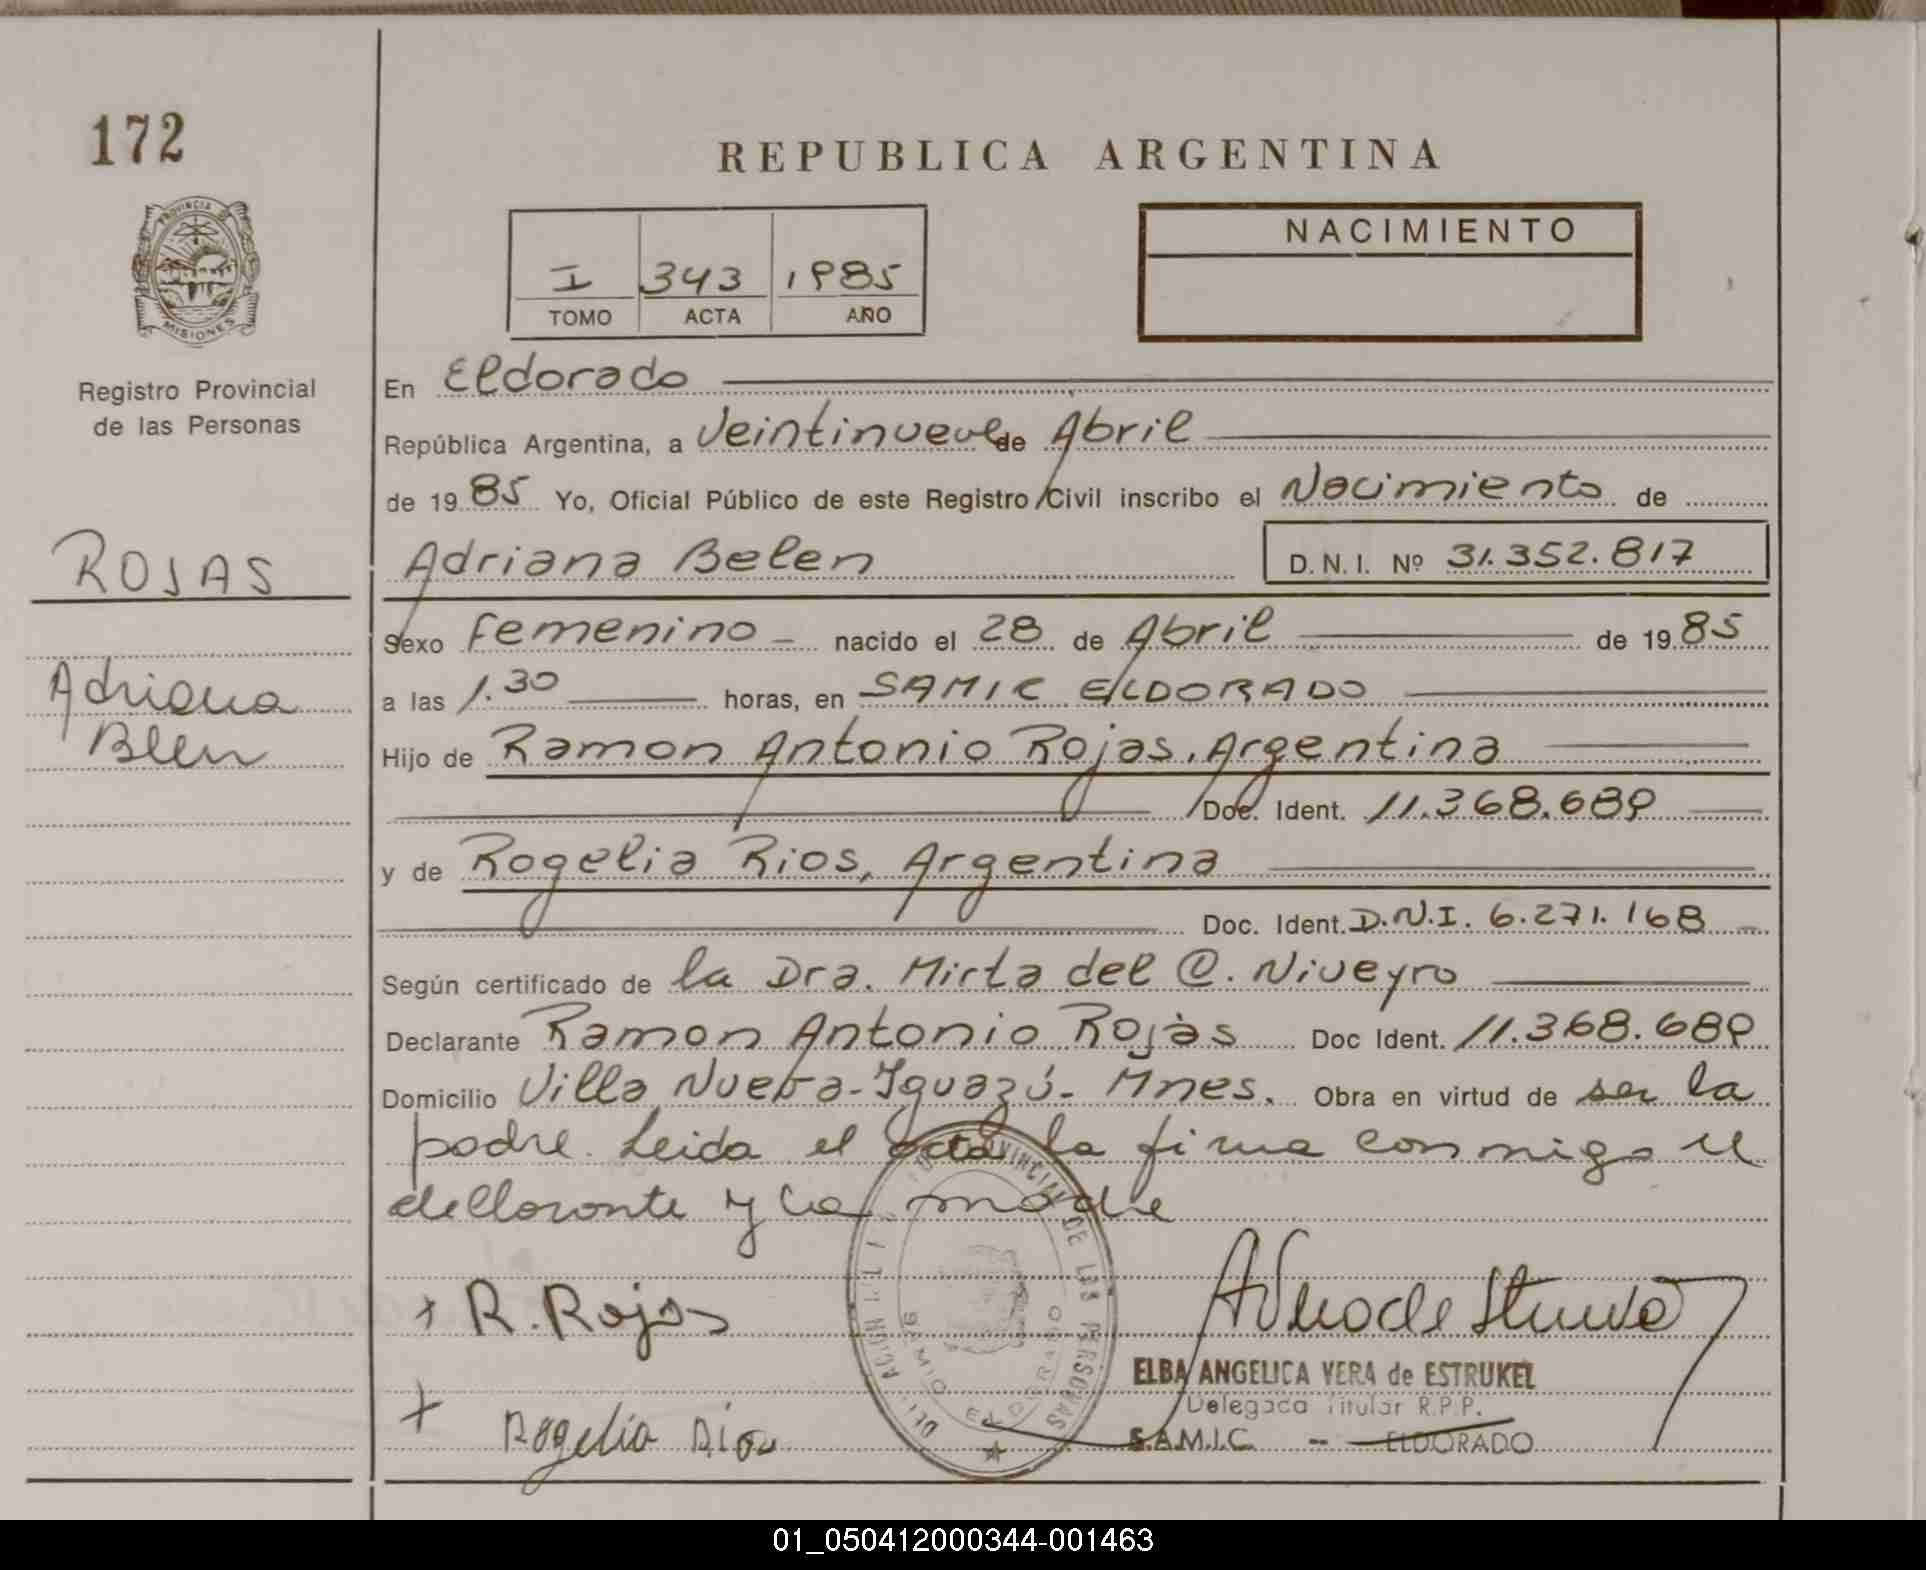 172
REPUBLICA ARGENTINA
PROVINCIA DE
MISIONES
Registro Provincial
de las Personas
I 343 1985
TOMO ACTA AÑO
NACIMIENTO
En Eldorado
República Argentina, a Veintinueve de Abril
de 19 85 Yo, Oficial Público de este Registro Civil inscribo el Nacimiento de
ROJAS
Adriana Belen D.N.I. Nº 31.352.817
Sexo Femenino - nacido el 28 de Abril de 19 85
Adriana
Belen
a las 1.30 horas, en SAMIC ELDORADO
Hijo de Ramon Antonio Rojas, Argentina
Doc. Ident. 11.368.689
y de Rogelia Rios, Argentina
Doc. Ident. D.N.I. 6.271.168
Según certificado de la Dra. Mirta del C. Niveyro
Declarante Ramon Antonio Rojas Doc Ident. 11.368.689
Domicilio Villa Nueva-Iguazú- Mnes. Obra en virtud de ser la
padre. Leida el acta la firma conmigo el
declarante y la madre
+ R. Rojas
+ Rogelia Rios
PROVINCIAL DE LAS PERSONAS
SAMIC ELDORADO
ELBA ANGELICA VERA de ESTRUKEL
Delegada Titular R.P.P.
S.A.M.I.C. -- ELDORADO
01_050412000344-001463